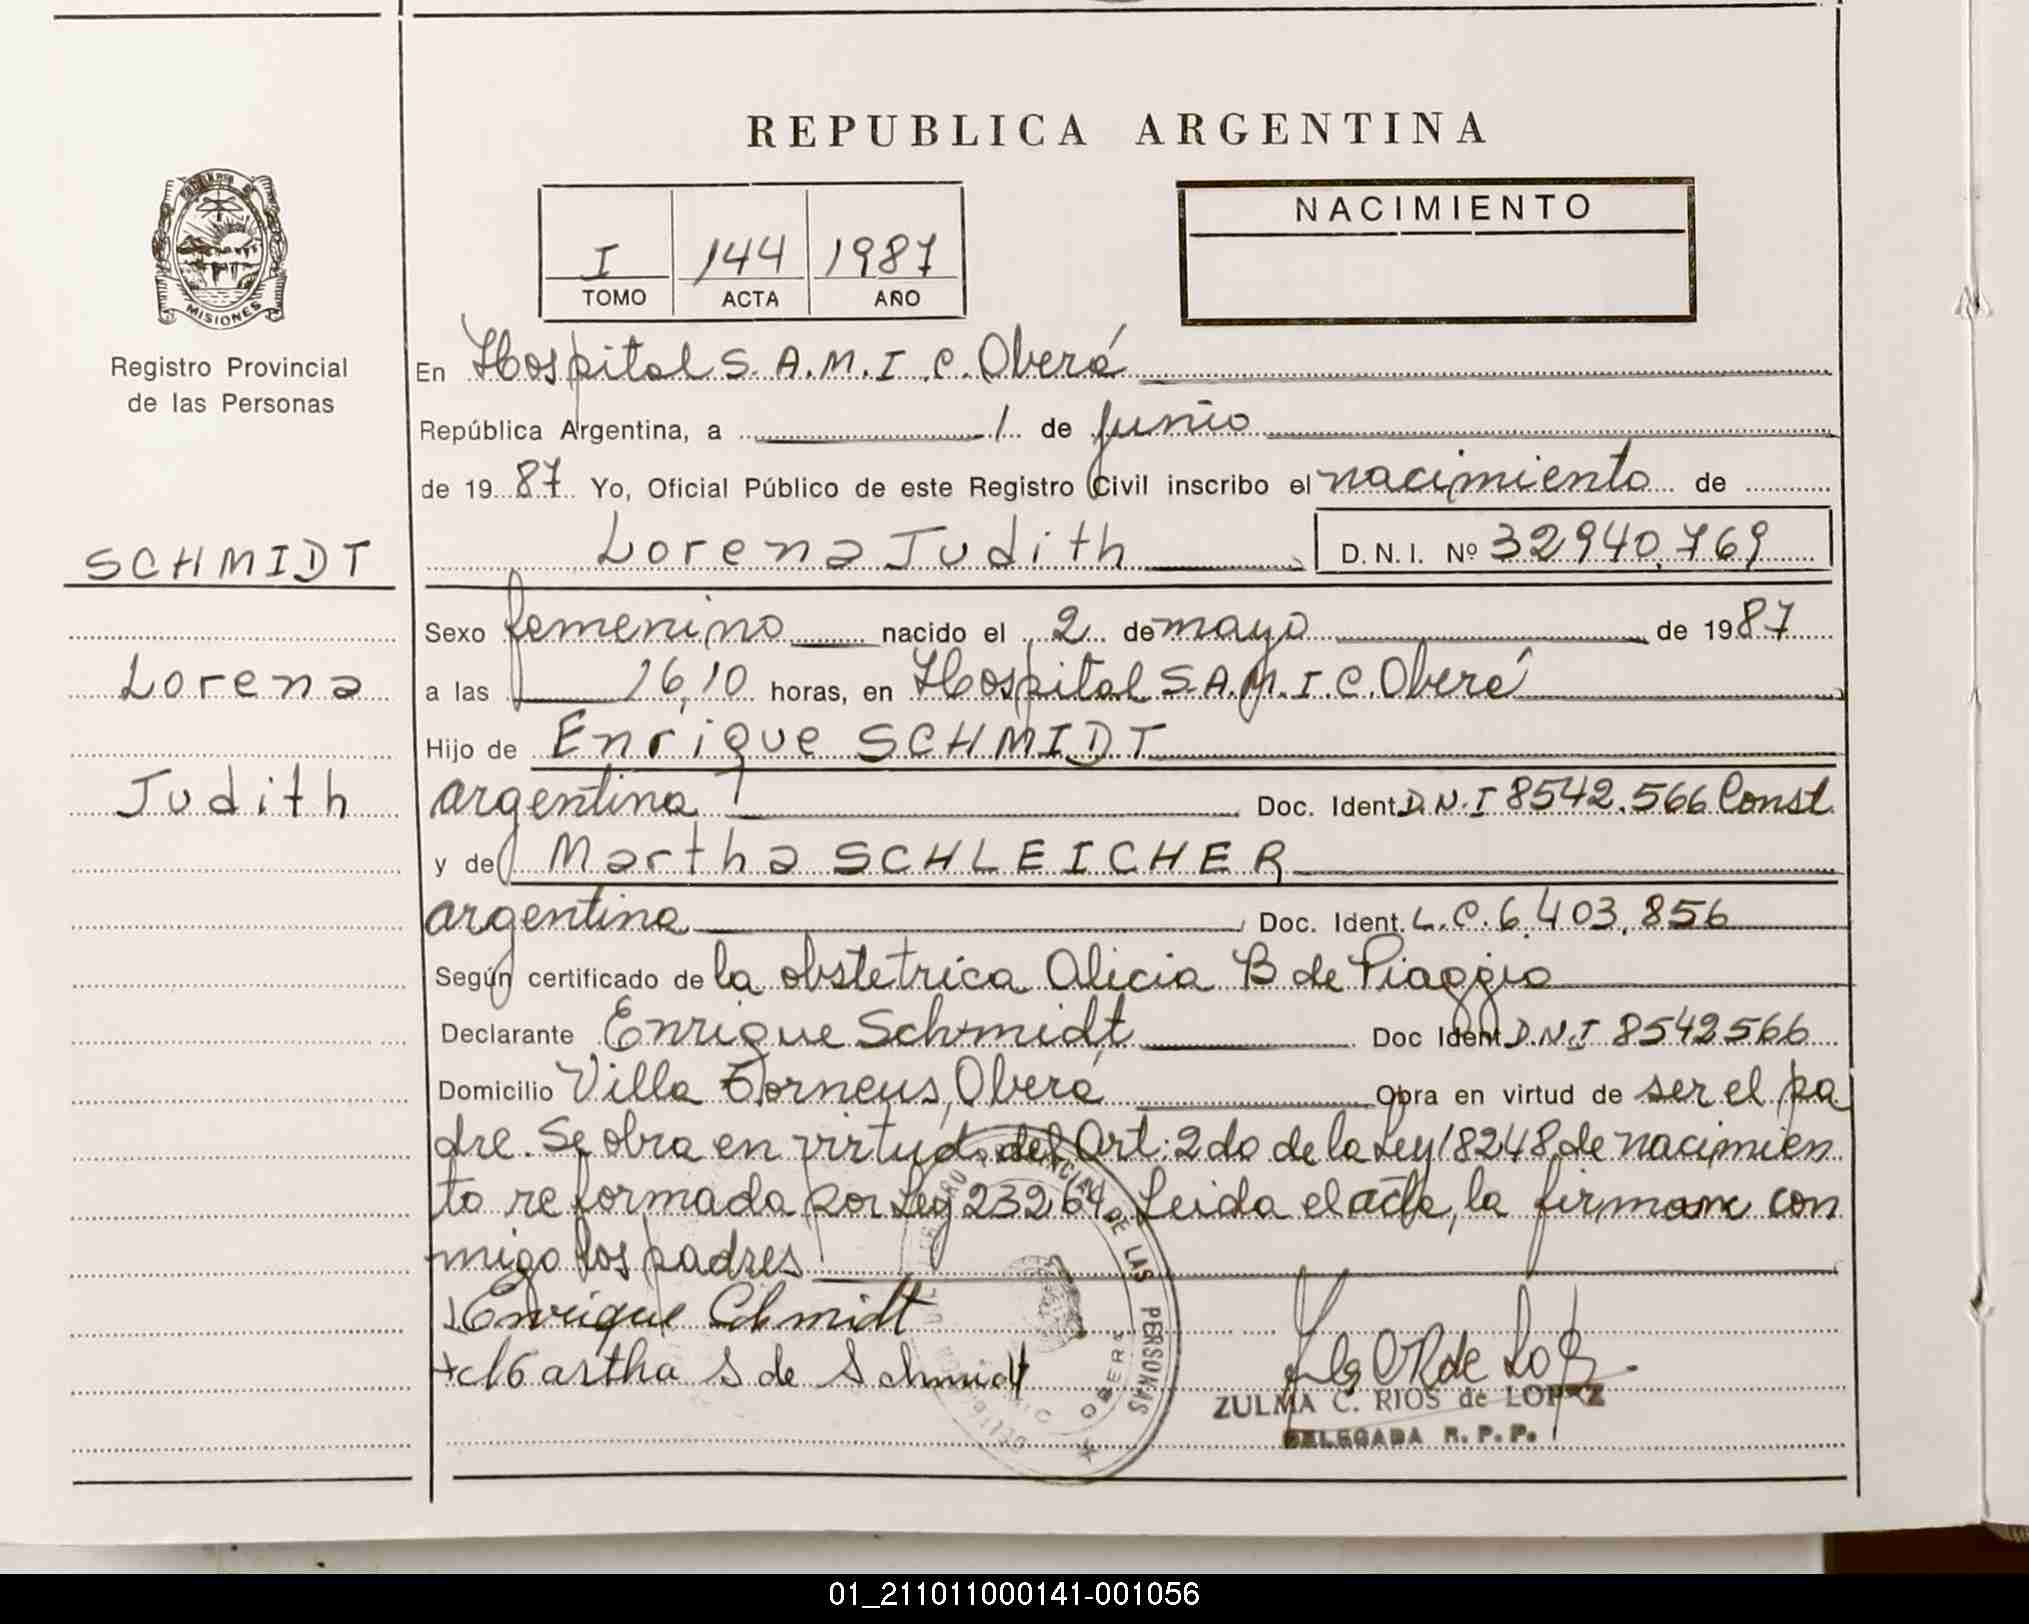 REPUBLICA ARGENTINA
I 144 1987
TOMO ACTA AÑO
NACIMIENTO
MISIONES
Registro Provincial
de las Personas
SCHMIDT
Lorena
Judith
En Hospital S.A.M.I.C. Oberá
República Argentina, a 1 de junio
de 1987 Yo, Oficial Público de este Registro Civil inscribo el nacimiento de
Lorena Judith D.N.I. Nº 32940.769
Sexo femenino nacido el 2 de mayo de 1987
a las 16,10 horas, en Hospital S.A.M.I.C. Oberá
Hijo de Enrique SCHMIDT
argentina Doc. Ident. D.N.I 8542.566 Const
y de Martha SCHLEICHER
argentina Doc. Ident. L.C. 6.403.856
Según certificado de la obstetrica Alicia B de Piaggio
Declarante Enrique Schmidt Doc Ident D.N.I 8542566
Domicilio Villa Torneus, Oberá Obra en virtud de ser el pa
dre. Se obra en virtud del Art: 2do de la Ley 18248 de nacimien
to reformada por Ley 23264. Leida el acta, la firman con
migo los padres
Enrique Schmidt
Martha S de Schmidt
DE LAS PERSONAS
OBERA
ZULMA C. RIOS de LOPEZ
DELEGADA R.P.P.
01_211011000141-001056